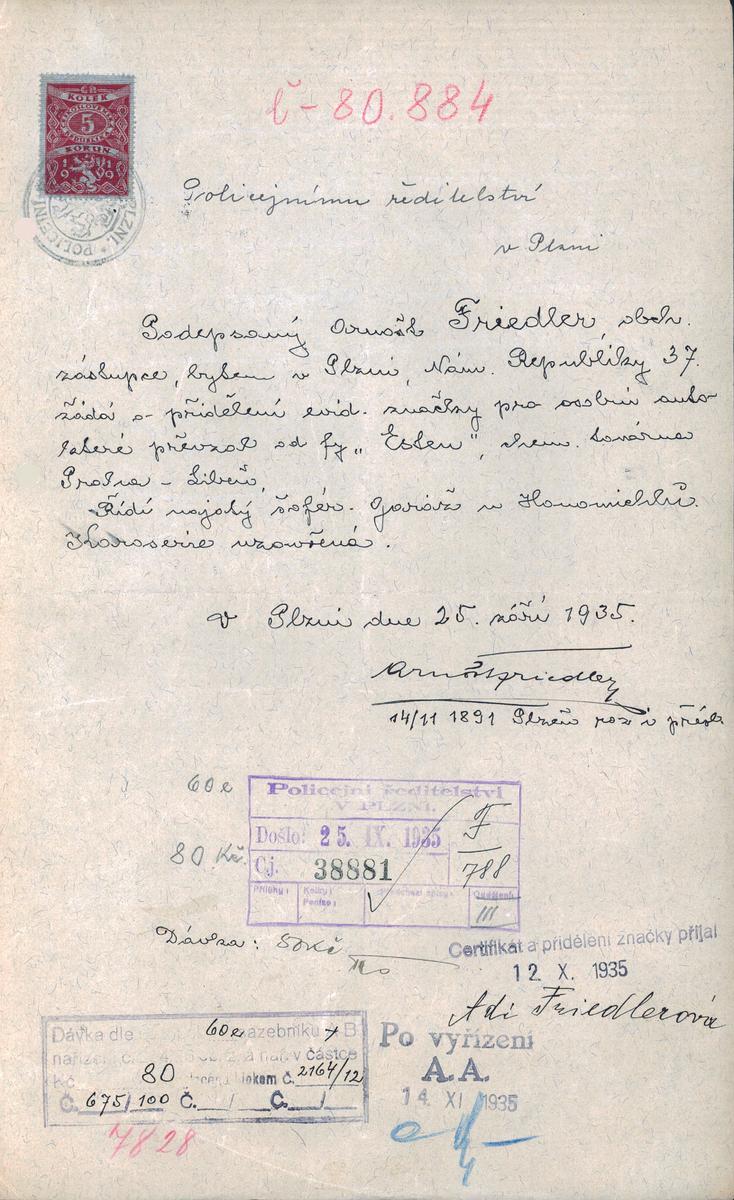 KOLEK
5
KORUN
1919
č-80.884
Policejnímu ředitelství
v Plzni
Podepsaný Arnošt Friedler, obch.
zástupce, bytem v Plzni, Nám. Republiky 37.
žádá o přidělení evid. značky pro osobní auto
které převzal od fy „Esten", chem. továrna
Praha - Libeň,
Řídí najatý šofér. Garáž u Hanamichlů.
Karoserie uzavřená.
V Plzni dne 25. září 1935.
Arnošt Friedler
14/11 1891 Plzeň roz i přísl
60 e
80 Kč.
Policejní ředitelství
V PLZNI.
Došlo: 25. IX. 1935
Čj. 38881
F
788
Přílohy:
Kolky:
Peníze:
Oddělení:
III
Dávka: 80Kč
Certifikát a přidělení značky přijal
12. X. 1935
Adi Friedlerová
Dávka dle 60e sazebníku + B
nařízení v částce
Kč 80 blokem č. 2164/12
Č. 675/100 Č. / Č. /
7828
Po vyřízení
A.A.
14. XI 1935